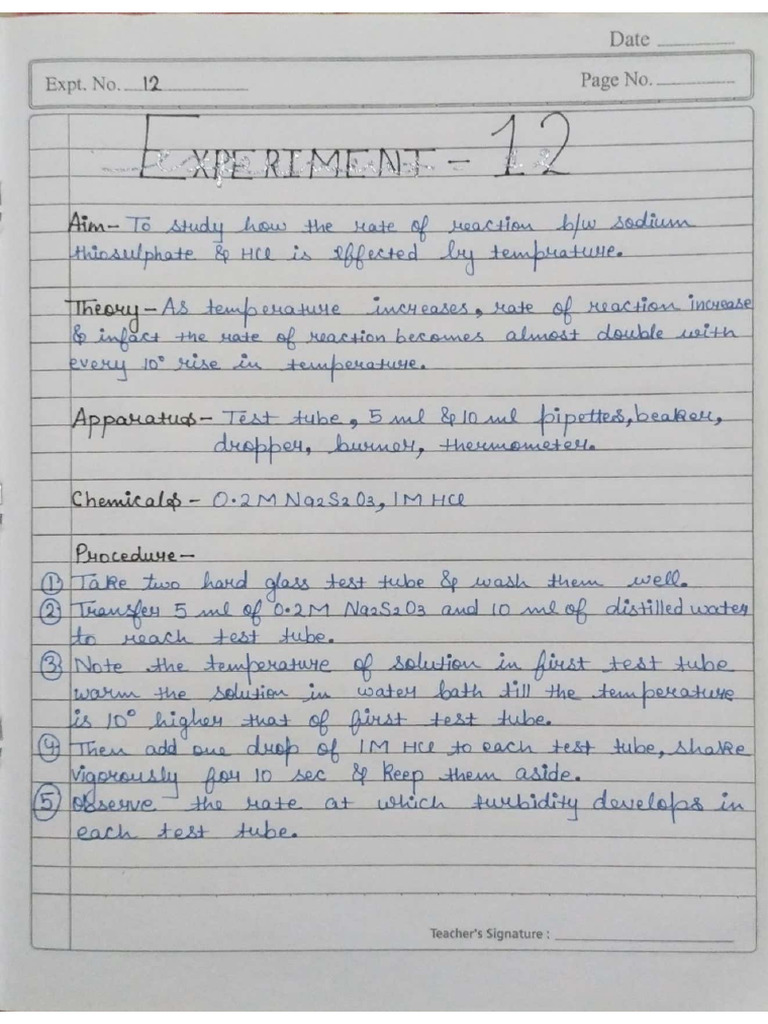 Date
Expt. No. 12
Page No.
EXPERIMENT - 12
Aim - To study how the rate of reaction b/w sodium
thiosulphate & HCl is effected by temprature.
Theory - As temperature increases, rate of reaction increase
& infact the rate of reaction becomes almost double with
every 10° rise in temperature.
Apparatus - Test tube, 5 ml & 10 ml pipettes, beaker,
dropper, burner, thermometer.
Chemicals - 0.2M Na2S2O3, 1M HCl
Procedure -
① Take two hard glass test tube & wash them well.
② Transfer 5 ml of 0.2M Na2S2O3 and 10 ml of distilled water
to reach test tube.
③ Note the temperature of solution in first test tube
warm the solution in water bath till the temperature
is 10° higher that of first test tube.
④ Then add one drop of 1M HCl to each test tube, shake
vigorously for 10 sec & keep them aside.
⑤ Observe the rate at which turbidity develops in
each test tube.
Teacher's Signature :